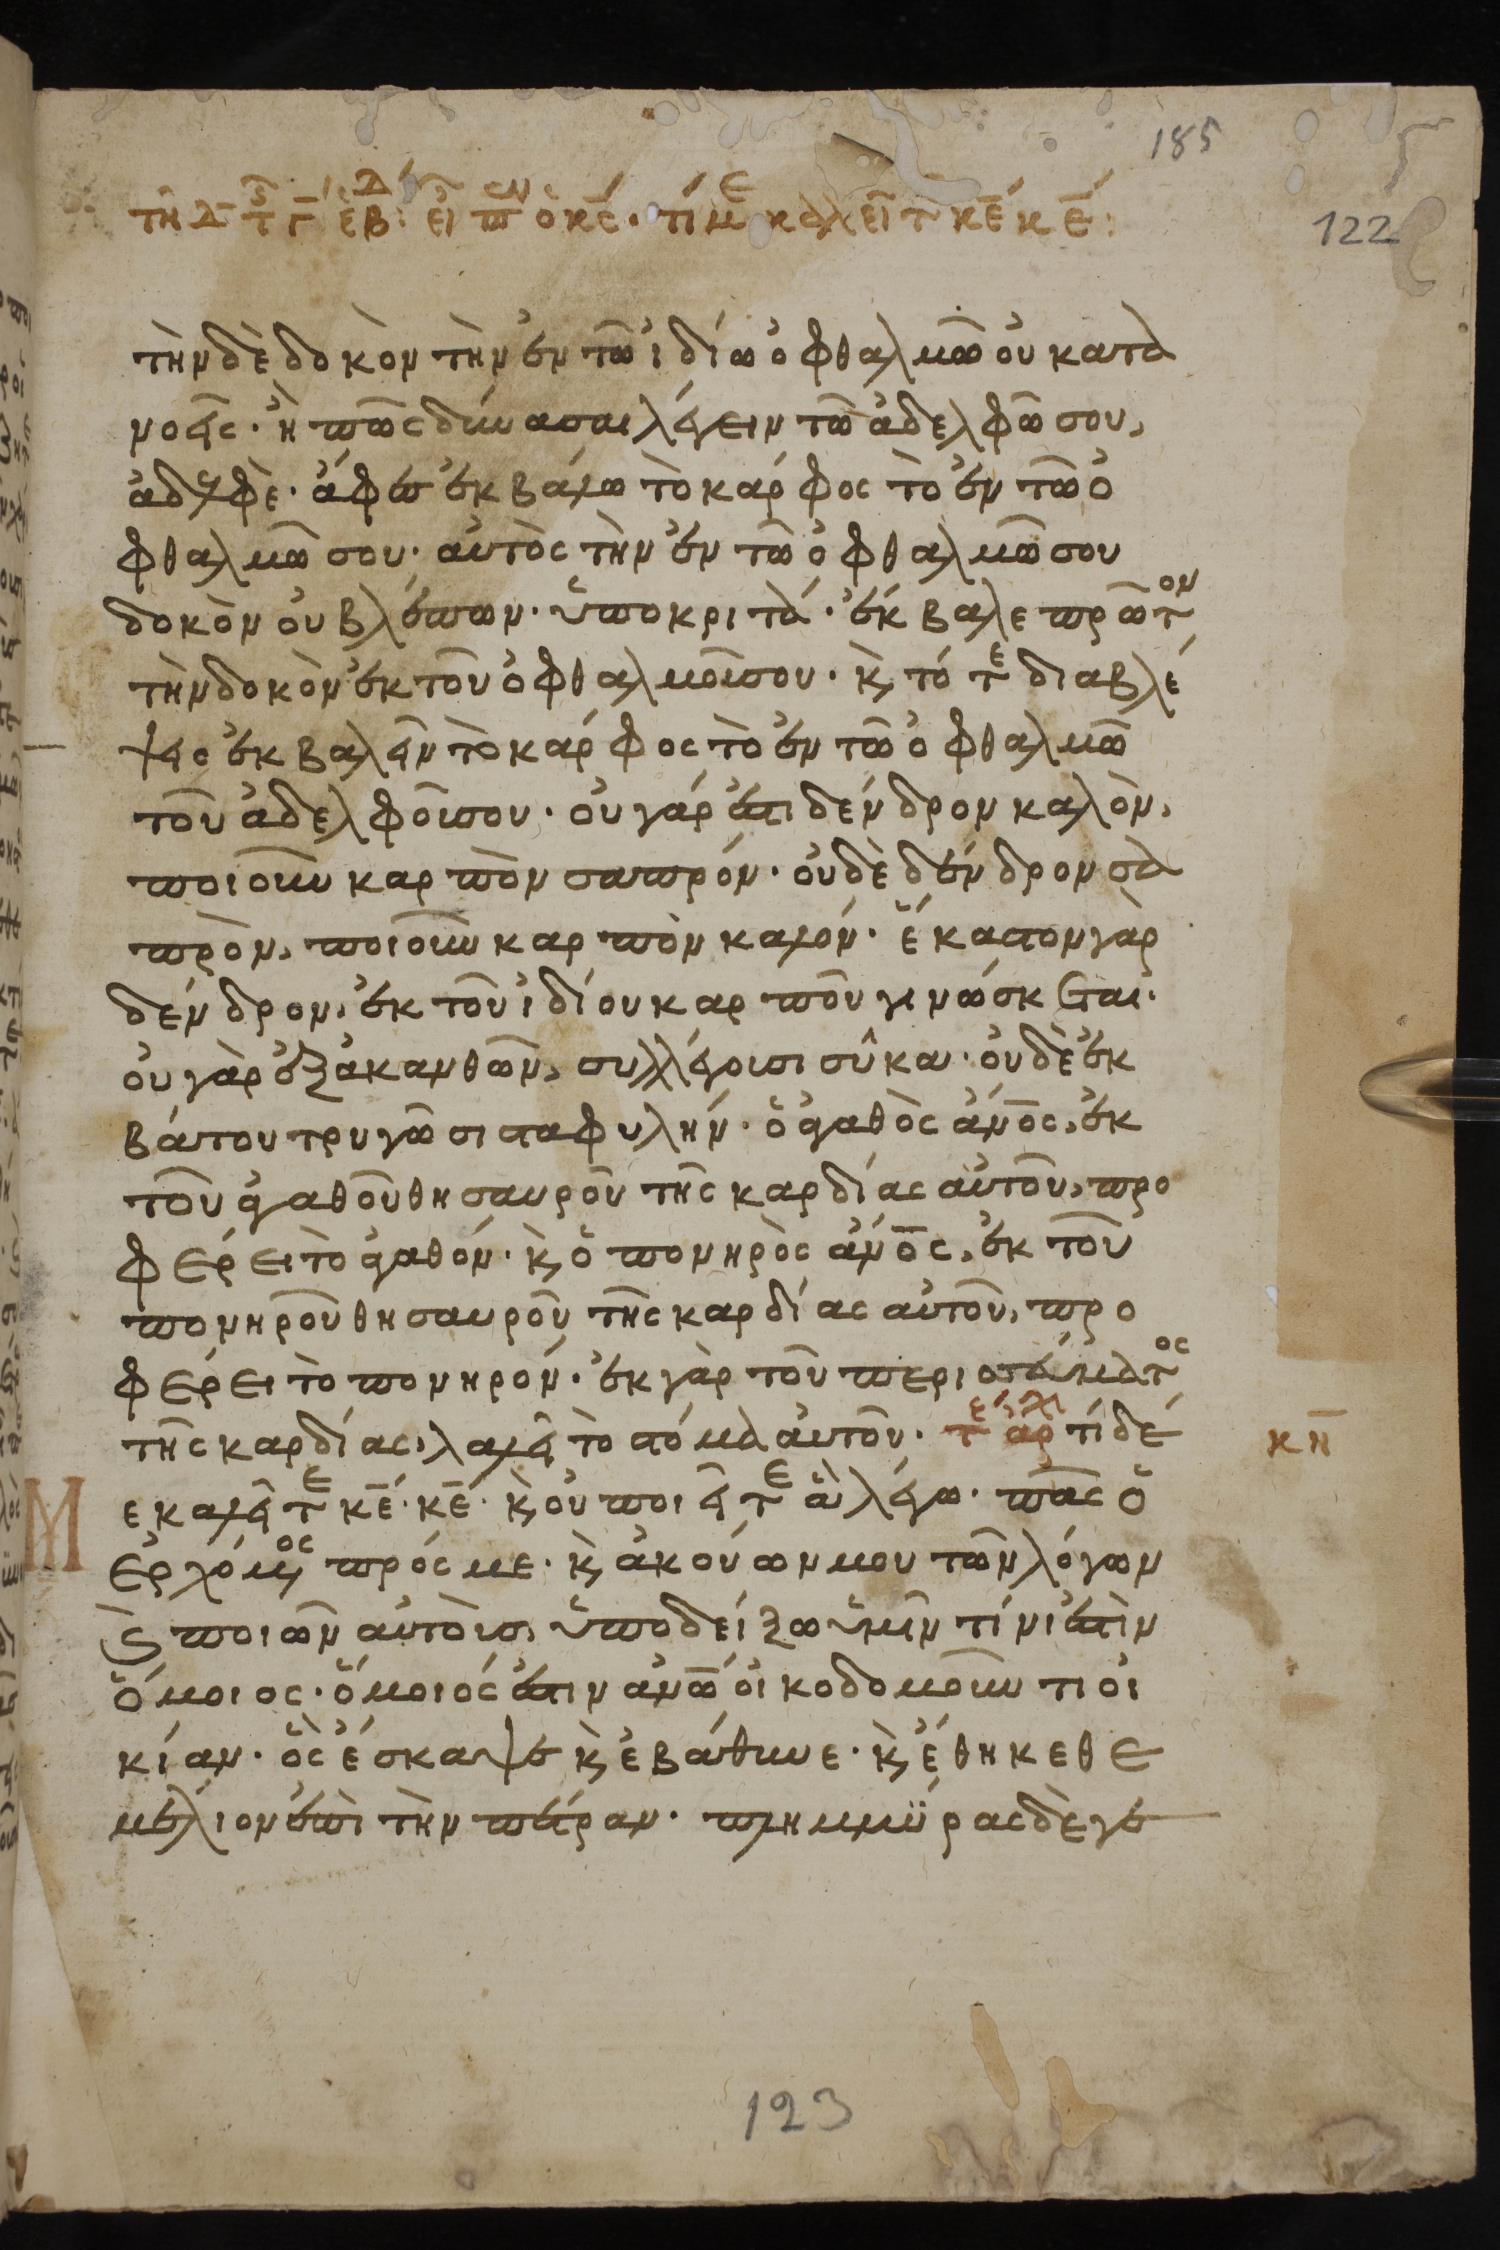 185
122
τῆ δ τ γ ἑβδ: εἶπεν ὁ κς· τί με καλεῖτε κε κε:
τὴν δὲ δοκὸν τὴν ἐν τῶ ἰδίω ὀφθαλμῶ οὐ κατα
νοεῖς· ἢ πῶς δύνασαι λέγειν τῶ ἀδελφῶ σου,
ἀδελφὲ· ἄφες ἐκβάλω τὸ κάρφος τὸ ἐν τῶ ὀ
φθαλμῶ σου· αὐτὸς τὴν ἐν τῶ ὀφθαλμῶ σου
δοκὸν οὐ βλέπων· ὑποκριτὰ· ἔκβαλε πρῶτον
τὴν δοκὸν ἐκ τοῦ ὀφθαλμοῦ σου· κ τότε διαβλέ
ψεις ἐκβαλεῖν τὸ κάρφος τὸ ἐν τῶ ὀφθαλμῶ
τοῦ ἀδελφοῦ σου· οὐ γάρ ἐστι δένδρον καλὸν,
ποιοῦν καρπὸν σαπρόν· οὐδὲ δένδρον σα
πρὸν, ποιοῦν καρπὸν καλόν· ἕκαστον γὰρ
δένδρον, ἐκ τοῦ ἰδίου καρποῦ γινώσκεται·
οὐ γὰρ ἐξ ἀκανθῶν, συλλέγουσι σῦκα· οὐδὲ ἐκ
βάτου τρυγῶσι σταφυλήν· ὁ ἀγαθὸς ἄνος, ἐκ
τοῦ ἀγαθοῦ θησαυροῦ τῆς καρδίας αὐτοῦ, προ
φέρει τὸ ἀγαθόν· κ ὁ πονηρὸς ἄνος, ἐκ τοῦ
πονηροῦ θησαυροῦ τῆς καρδίας αὐτοῦ, προ
φέρει τὸ πονηρόν· ἐκ γὰρ τοῦ περισσεύματος
τῆς καρδίας, λαλεῖ τὸ στόμα αὐτοῦ· τέλ ἀρ τί δέ
κη
με καλεῖτε κε· κε· κ οὐ ποιεῖτε ἃ λέγω· πᾶς ὁ
ἐρχόμενος πρός με· κ ἀκούων μου τῶν λόγων
κ ποιῶν αὐτοὺς, ὑποδείξω ὑμῖν τίνι ἐστὶν
ὅμοιος· ὅμοιός ἐστιν ἀνω οἰκοδομοῦντι οἰ
κίαν· ὃς ἔσκαψε κ ἐβάθυνε· κ ἔθηκε θε
μέλιον ἐπὶ τὴν πέτραν· πλημμύρας δὲ γε
123